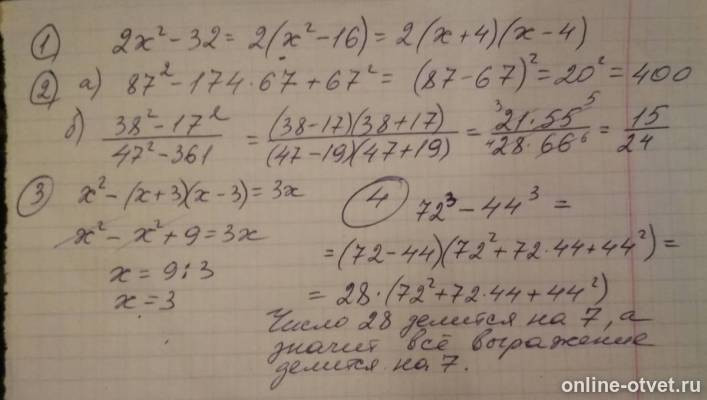 ① 2x² - 32 = 2(x² - 16) = 2(x + 4)(x - 4)
② а) 87² - 174 · 67 + 67² = (87 - 67)² = 20² = 400
б) (38² - 17²)/(47² - 361) = ((38 - 17)(38 + 17))/((47 - 19)(47 + 19)) = (³21 · 55⁵)/(₄28 · 66₆) = 15/24
③ x² - (x + 3)(x - 3) = 3x
x² - x² + 9 = 3x
x = 9 : 3
x = 3
④ 72³ - 44³ =
= (72 - 44)(72² + 72 · 44 + 44²) =
= 28 · (72² + 72 · 44 + 44²)
Число 28 делится на 7, а
значит всё выражение
делится на 7.
online-otvet.ru